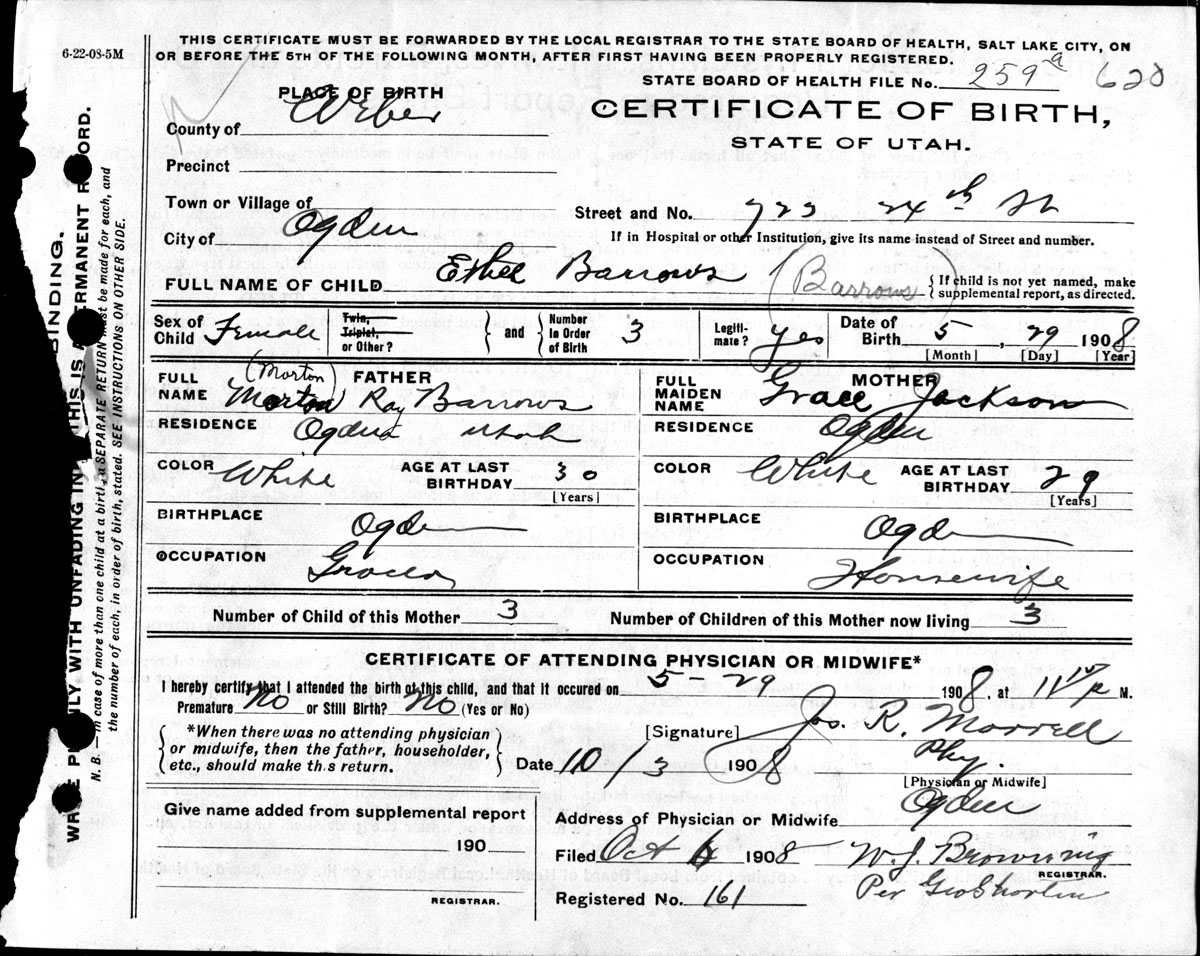 6-22-08-5M
THIS CERTIFICATE MUST BE FORWARDED BY THE LOCAL REGISTRAR TO THE STATE BOARD OF HEALTH, SALT LAKE CITY, ON
OR BEFORE THE 5TH OF THE FOLLOWING MONTH, AFTER FIRST HAVING BEEN PROPERLY REGISTERED.
STATE BOARD OF HEALTH FILE No. 259 a 620
PLACE OF BIRTH
CERTIFICATE OF BIRTH,
STATE OF UTAH.
County of Weber
Precinct
Town or Village of
Street and No. 723 24th St
City of Ogden
If in Hospital or other Institution, give its name instead of Street and number.
FULL NAME OF CHILD Ethel Barrows (Barrows) { If child is not yet named, make
supplemental report, as directed.
Sex of Child Female Twin, Triplet, or Other? } and { Number in Order of Birth 3 Legiti- mate? yes Date of Birth 5, 29 1908
[Month] [Day] [Year]
FATHER
FULL NAME (Morton) Morton Ray Barrows
RESIDENCE Ogden Utah
COLOR White AGE AT LAST BIRTHDAY 30
[Years]
BIRTHPLACE Ogden
OCCUPATION Grocer
MOTHER
FULL MAIDEN NAME Grace Jackson
RESIDENCE Ogden
COLOR White AGE AT LAST BIRTHDAY 29
[Years]
BIRTHPLACE Ogden
OCCUPATION Housewife
Number of Child of this Mother 3 Number of Children of this Mother now living 3
CERTIFICATE OF ATTENDING PHYSICIAN OR MIDWIFE*
I hereby certify that I attended the birth of this child, and that it occured on 5-29 1908, at 11 P M.
Premature No or Still Birth? No (Yes or No)
{ *When there was no attending physician
or midwife, then the father, householder,
etc., should make th.s return. }
[Signature] Jos. R. Morrell
Phy.
Date 10/3 1908
[Physician or Midwife]
Address of Physician or Midwife Ogden
Give name added from supplemental report
190
REGISTRAR.
Filed Oct 6 1908 W. J. Browning
REGISTRAR.
Registered No. 161 Per Geo Shorten
BINDING.
THIS IS A PERMANENT RECORD.
WITH UNFADING IN
N. B. — In case of more than one child at a birth, a SEPARATE RETURN must be made for each, and
the number of each, in order of birth, stated. SEE INSTRUCTIONS ON OTHER SIDE.